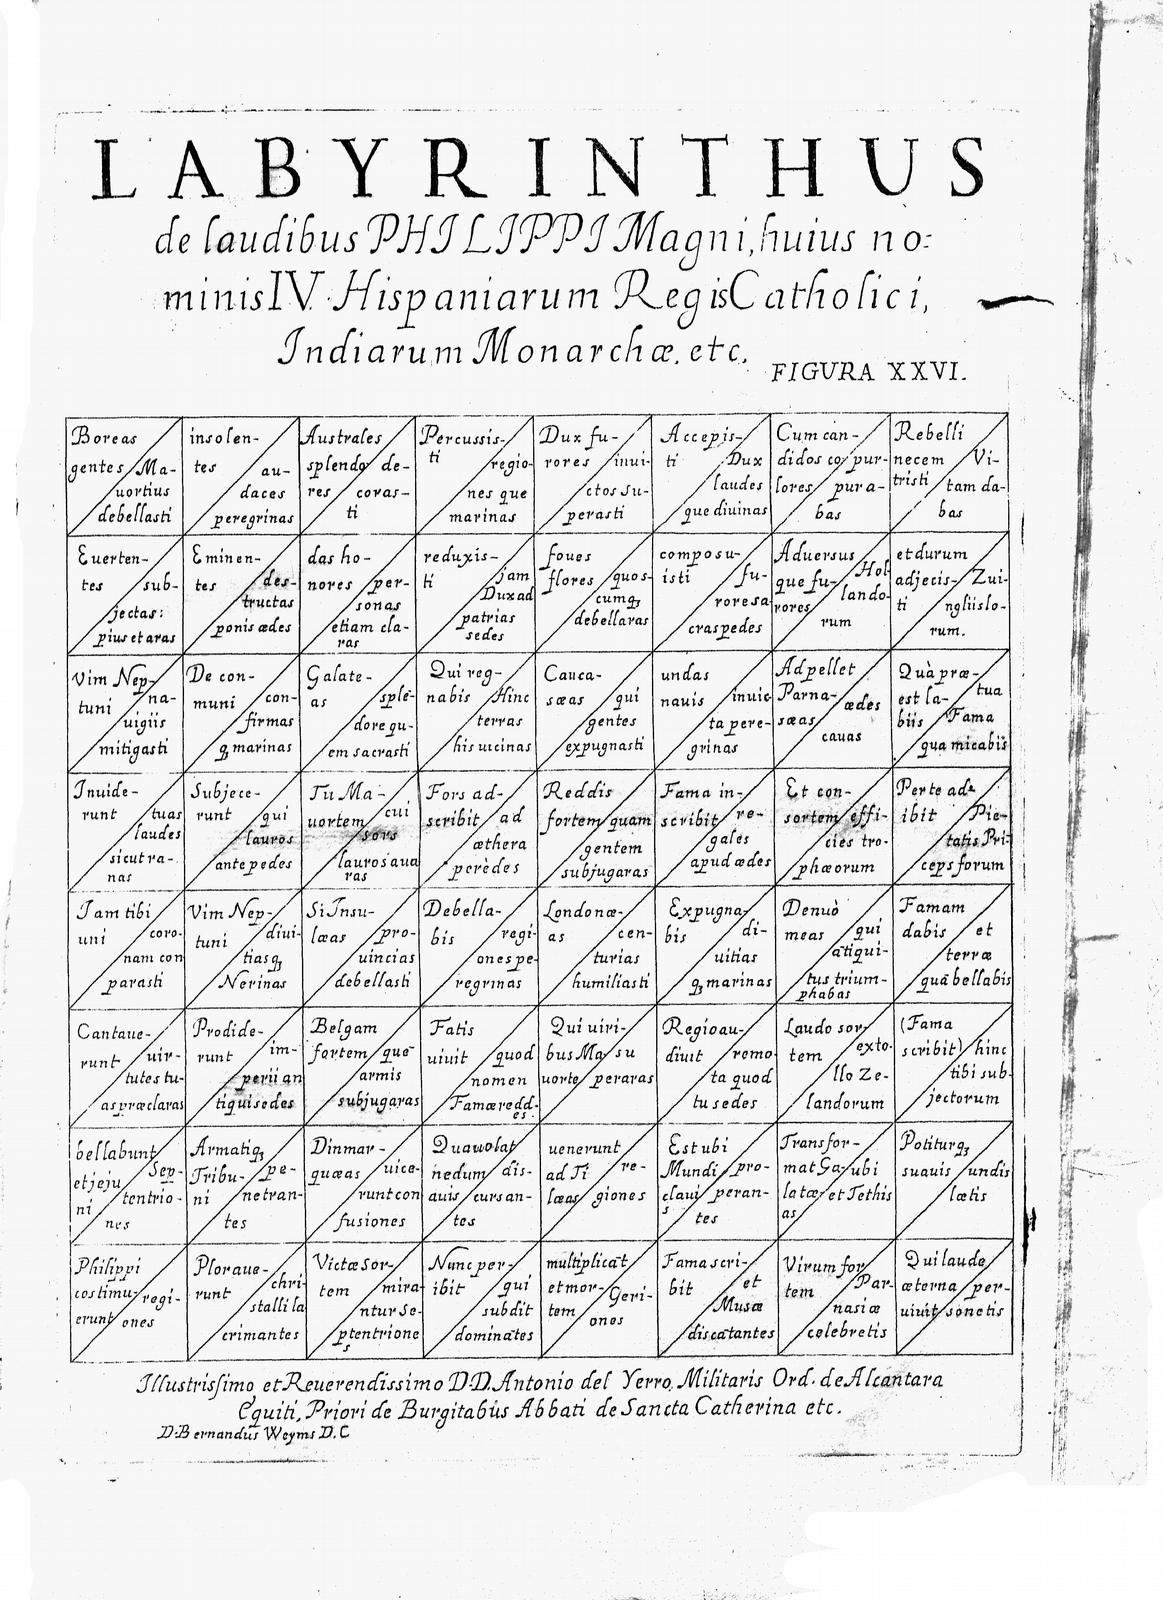 LABYRINTHUS
de laudibus PHILIPPI Magni, huius no:
minis IV. Hispaniarum Regis Catholici,
Indiarum Monarchæ, etc.
FIGURA XXVI.
Boreas
gentes Ma-
uortius
debellasti
insolen-
tes au-
daces
peregrinas
Australes
splendo de-
res coras-
ti
Percussis-
ti regio-
nes que
marinas
Dux fu-
rores inui-
ctos su-
perasti
Accepis-
ti Dux
laudes
que diuinas
Cum can-
didos co pur-
lores pura-
bas
Rebelli
necem Vi-
tristi tam da-
bas
Euerten-
tes sub-
jectas:
pius et aras
Eminen-
tes des-
tructas
ponis ædes
das ho-
nores per-
sonas
etiam cla-
ras
reduxis-
ti jam
Dux ad
patrias
sedes
foues
flores quos-
cumq3
debellaras
composu-
isti fu-
rores a
cras pedes
Aduersus
que fu- Hol
rores lando-
rum
et durum
adjecis- Zui-
ti nglijs lo-
rum.
Vim Nep-
tuni na-
uigijs
mitigasti
De con-
muni con-
firmas
q3 marinas
Galate-
as splē-
dore qu-
em sacrasti
Qui reg-
nabis Hinc
terras
his uicinas
Cauca-
sæas qui
gentes
expugnasti
undas
nauis inuic
ta pere-
grinas
Ad pellet
Parna- ædes
sæas
cauas
Quà præ-
est la- tua
biis Fama
qua micabis
Inuide-
runt tuas
laudes
sicut ra-
nas
Subjece-
runt qui
lauros
ante pedes
Tu Ma-
uortem cui
sors
lauros aua
ras
Fors ad-
scribit ad
æthera
per èdes
Reddis
fortem quam
gentem
subjugaras
Fama in-
scribit re-
gales
apud ædes
Et con-
sortem effi-
cies tro-
phæorum
Per te ad-
ibit Pie-
tatis Pri-
ceps forum
Iam tibi
uni coro-
nam con
parasti
Vim Nep-
tuni diui-
tias q3
Nerinas
Si Insu-
læas pro-
uincias
debellasti
Debella-
bis regi-
ones pe-
regrinas
Londonæ-
as cen-
turias
humiliasti
Expugna-
bis di-
uitias
q3 marinas
Denuò
meas qui
ātiqui-
tus trium-
phabas
Famam
dabis et
terræ
quā bellabis
Cantaue-
runt uir-
tutes tu-
as præclaras
Prodide-
runt im-
perii an
tiqui sedes
Belgam
fortem quē
armis
subjugaras
Fatis
uiuit quod
nomen
Famæ redd-
es
Qui uiri-
bus Ma su
uorte peraras
Regio au-
diuit remo
ta quod
tu sedes
Laudo sor
tem exto-
llo Ze-
landorum
(Fama
scribit) hinc
tibi sub-
jectorum
bellabunt
et jeju Sep-
ni tentrio-
nes
Armatiq3
Tribu- pe-
ni netran-
tes
Dinmar-
quæas uice-
runt con
fusiones
Qua uolat
nedum dis-
auis cursan-
tes
uenerunt
ad Ti re-
læas giones
Est ubi
Mundi pro-
claui peran-
s tes
Transfor-
mat Ga- ubi
latæ et Tethis
as
Potiturq3
suauis undis
lætis
Philippi
cos timu- regi-
erunt ones
Ploraue-
runt chri-
stalli la
crimantes
Victæ sor-
tem mira
ntur Se-
ptentrione
s
Nunc per-
ibit qui
subdit
dominātes
multiplicāt
et mor- Geri-
tem ones
Fama scri-
bit et
Musæ
discātantes
Virum for
tem Par-
nasiæ
celebretis
Qui laude
æterna per-
uiuit sonetis
Illustrissimo et Reuerendissimo D.D. Antonio del Yerro, Militaris Ord. de Alcantara
Equiti, Priori de Burgitabūs Abbati de Sancta Catherina etc.
D. Bernardus Weyms D. C